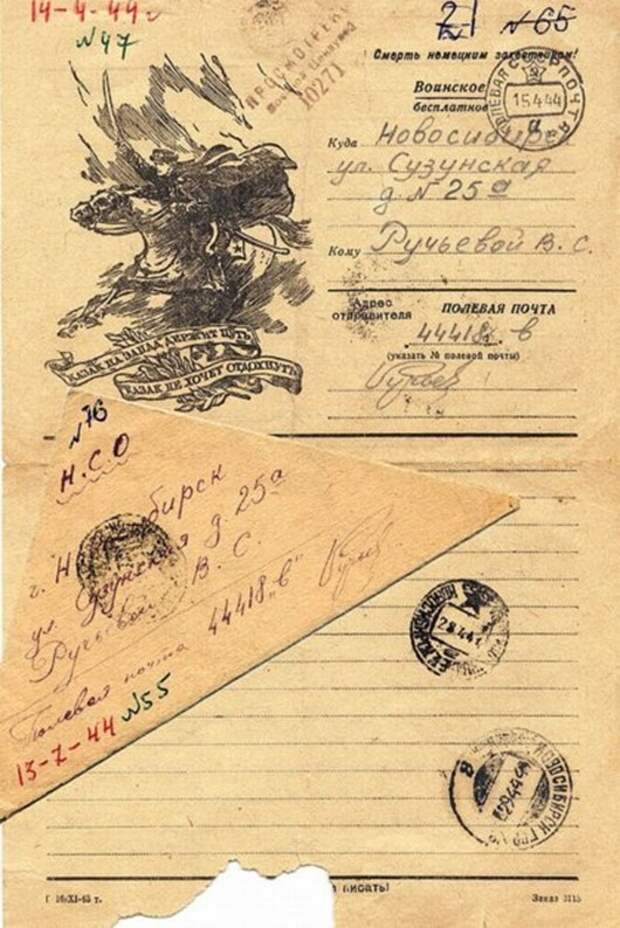 14-4-44 г.
N47
21 N 65
ПРОСМОТРЕНО
Военной Цензурой
10271
Смерть немецким захватчикам!
Воинское
бесплатное
ПОЛЕВАЯ ПОЧТА
15 4 44
Куда Новосибирск
ул. Сузунская
д. N 25а
Кому Ручьевой В. С.
Адрес отправителя
ПОЛЕВАЯ ПОЧТА
44418 в
(указать № полевой почты)
КАЗАК НА ЗАПАД ДЕРЖИТ ПУТЬ,
КАЗАК НЕ ХОЧЕТ ОТДОХНУТЬ
N76
Н.С.О
г. Новосибирск
ул. Сузунская д. 25а
Ручьевой В. С.
Полевая почта 44418 "в"
13-7-44 N55
28 4 44
НОВОСИБИРСК
29 4 44
писать!
Заказ 3115